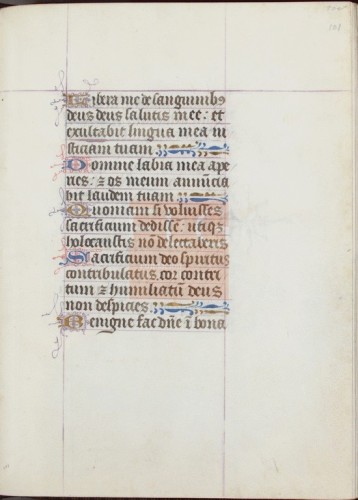 Libera me de sanguinibꝰ
deus deus salutis mee: et
exultabit lingua mea iu
sticiam tuam
Domine labia mea ape
ries: ⁊ os meum annūcia
bit laudem tuam
Quoniam si voluisses
sacrificium dedissē: utiqꝫ
holocaustis nō delectaberis
Sacrificium deo spiritus
contribulatus. cor contri
tum ⁊ humiliatū deus
non despicies
Benigne fac dn̄e ī bona